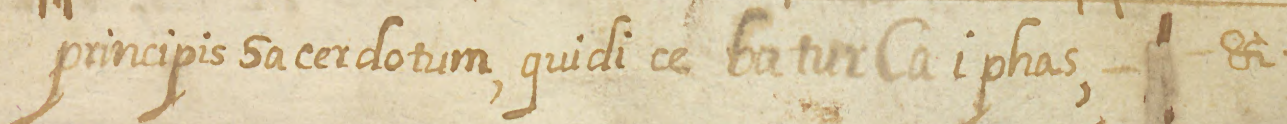 principis Sacerdotum, qui dicebatur Caiphas, — — &